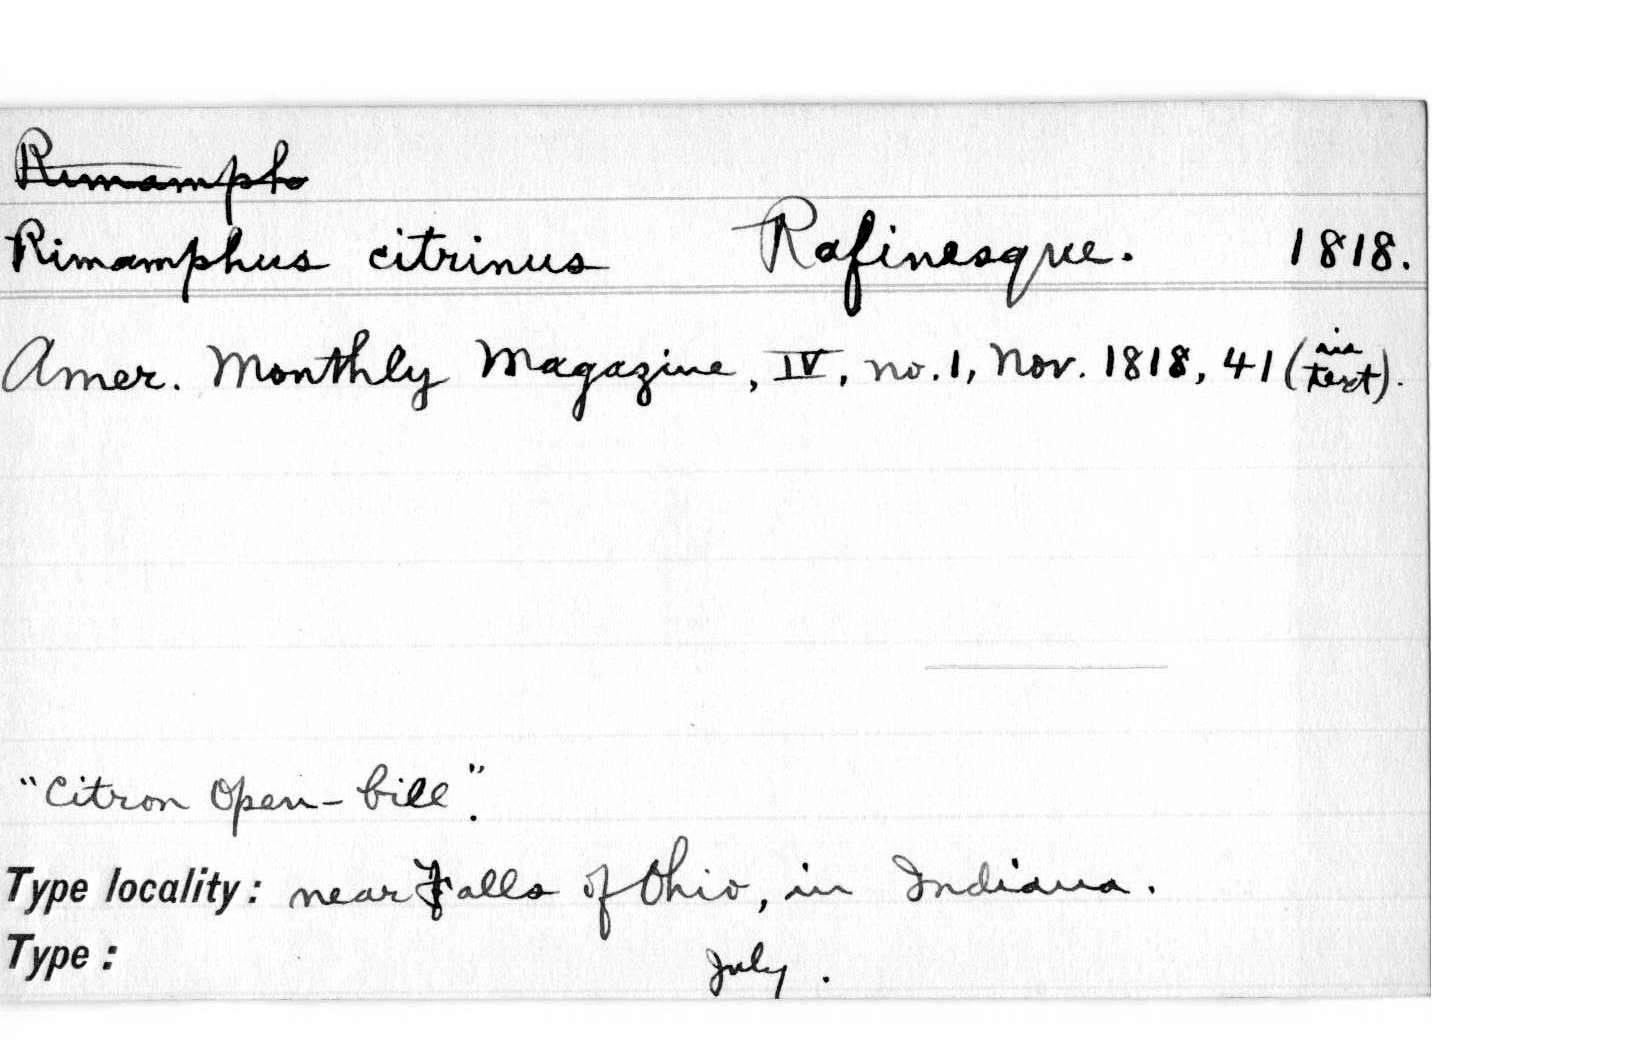 Rimampho
Rimamphus citrinus Rafinesque. 1818.
Amer. Monthly Magazine, IV, no. 1, Nov. 1818, 41 (in text).
"Citron Open-bill".
Type locality: near Falls of Ohio, in Indiana.
Type: July.